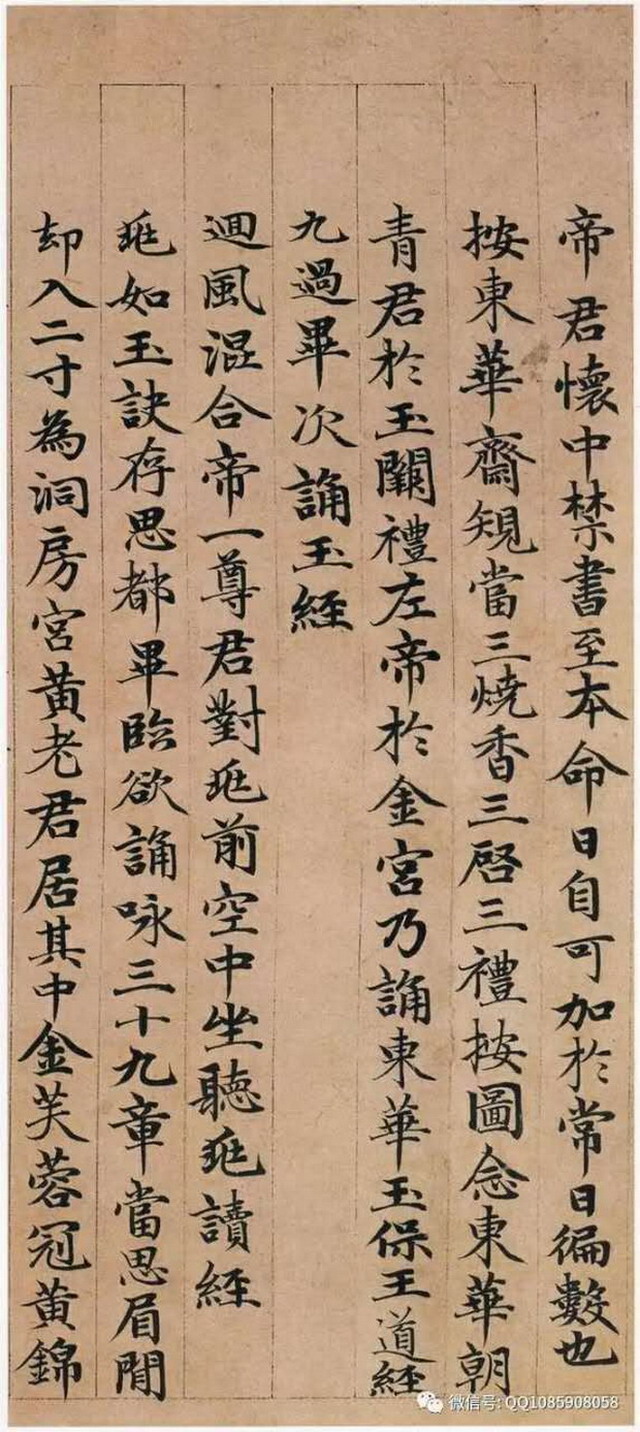 帝君懷中禁書至本命日自可加於常日徧數也
按東華齋規當三燒香三啓三禮按圖念東華朝
青君於玉闕禮左帝於金宮乃誦東華玉保王道經
九過畢次誦玉經
迴風混合帝一尊君對 前空中坐聽 讀經
 如玉訣存思都畢臨欲誦咏三十九章當思眉間
却入二寸為洞房宮黃老君居其中金芙蓉冠黃錦
微信号: QQ1085908058